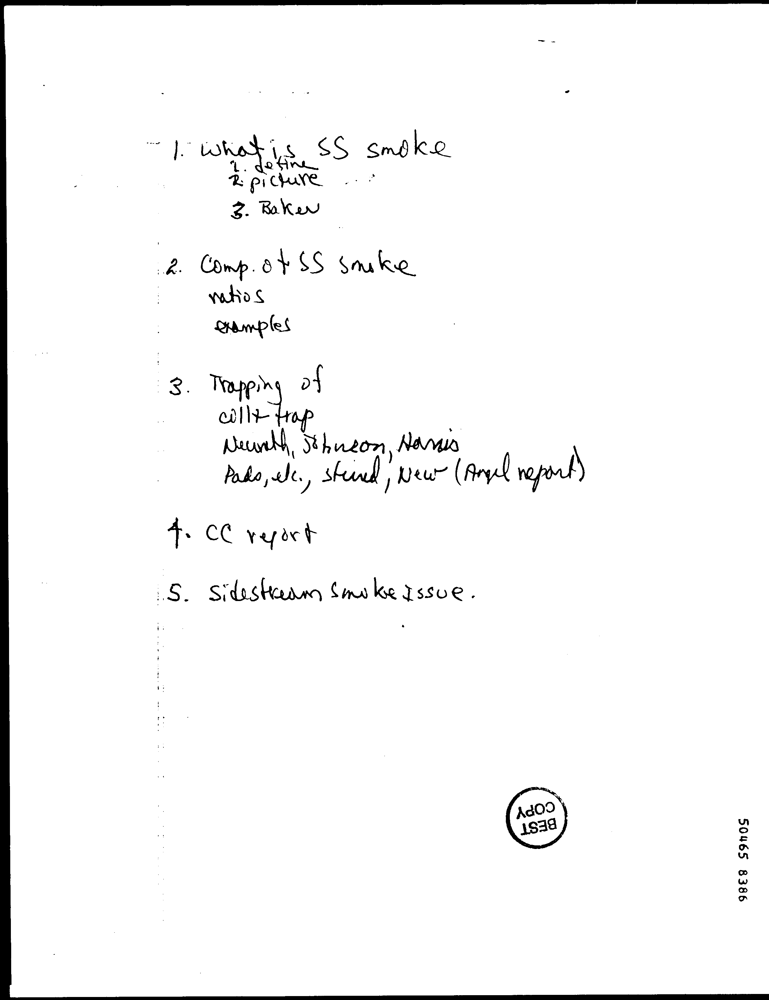 1. What is SS smoke
1. define
2. picture
3. Baker
2. Comp. of SS smoke
ratios
examples
3. Trapping of
trap
Neurath, Johnson, Harris
etc., New (
report)
4. CC report
5. Sidestream Smoke Issue.
BEST
COPY
50465 8386